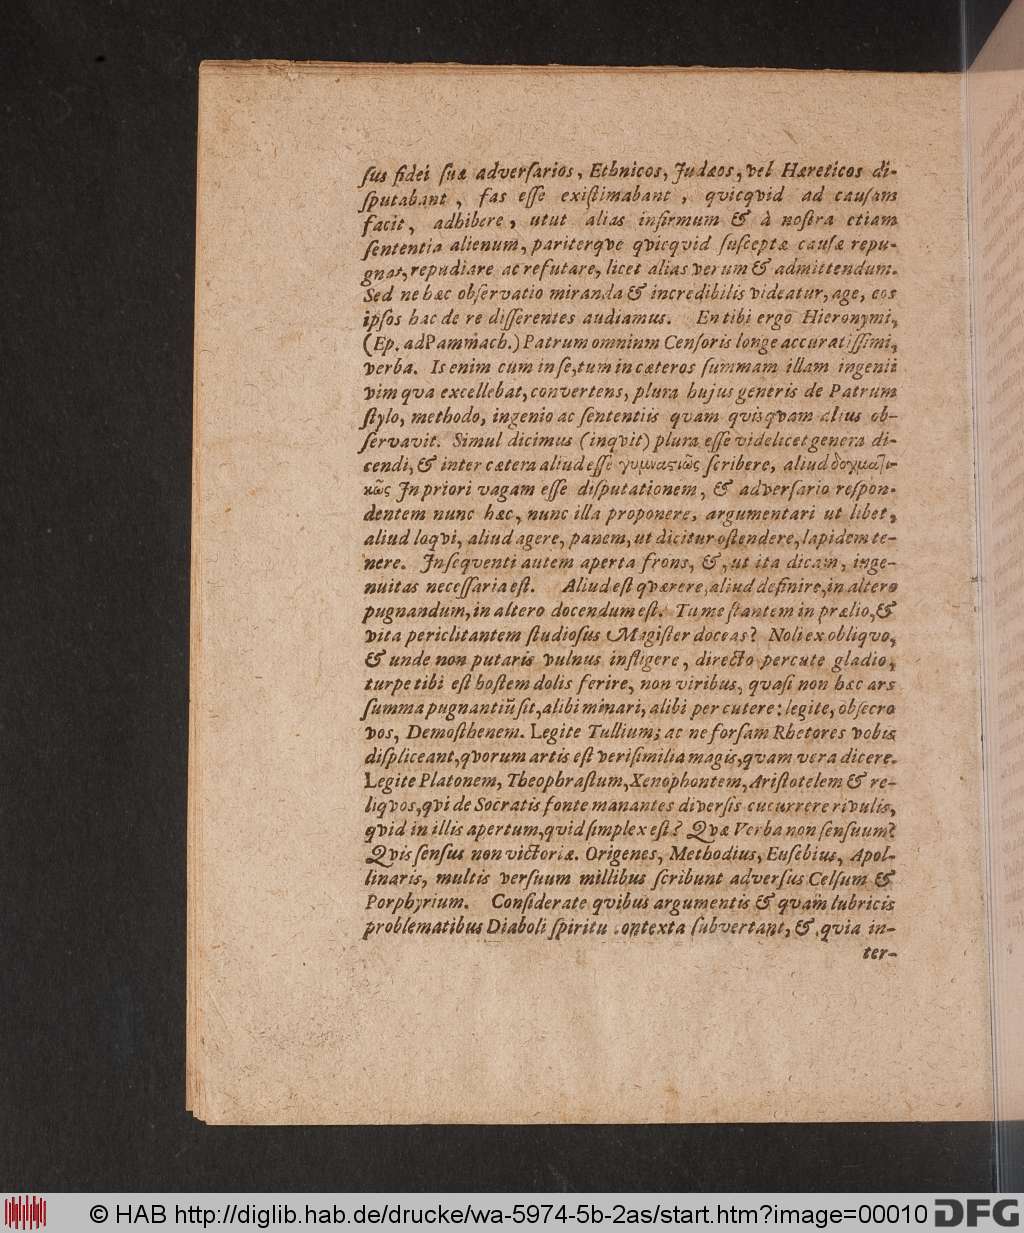 ſus fidei ſuæ adverſarios, Ethnicos, Judæos, vel Hæreticos di-
ſputabant, fas eſſe exiſtimabant, qvicqvid ad cauſam
facit, adhibere, utut alias infirmum & à noſtra etiam
ſententia alienum, pariterqve qvicqvid ſuſceptæ cauſæ repu-
gnat, repudiare ac refutare, licet alias verum & admittendum.
Sed ne hæc obſervatio miranda & incredibilis videatur, age, eos
ipſos hac de re diſſerentes audiamus. En tibi ergò Hieronymi,
(Ep. ad Pammach.) Patrum omnium Cenſoris longe accuratiſſimi,
verba. Is enim cum in ſe, tum in cæteros ſummam illam ingenii
vim qva excellebat, convertens, plura hujus generis de Patrum
ſtylo, methodo, ingenio ac ſententiis qvam qvisqvam alius ob-
ſervavit. Simul dicimus (inqvit) plura eſſe videlicet genera di-
cendi, & inter cætera aliud eſſe γυμναςιῶς ſcribere, aliud δογμαlι-
κῶς In priori vagam eſſe diſputationem, & adverſario reſpon-
dentem nunc hæc, nunc illa proponere, argumentari ut libet,
aliud loqvi, aliud agere, panem, ut dicitur oſtendere, lapidem te-
nere. Inſeqventi autem aperta frons, &, ut ita dicam, inge-
nuitas neceſſaria eſt. Aliud eſt qværere, aliud definire, in altero
pugnandum, in altero docendum eſt. Tu me ſtantem in prælio, &
vita periclitantem ſtudioſus Magiſter doceas? Noli ex obliqvo,
& unde non putaris vulnus infligere, directo percute gladio,
turpe tibi eſt hoſtem dolis ferire, non viribus, quaſi non hæc ars
ſumma pugnantiũ ſit, alibi minari, alibi percutere: legite, obſecro
vos, Demoſthenem. Legite Tullium; ac ne forſam Rhetores vobis
diſpliceant, qvorum artis eſt veriſimilia magis, qvam vera dicere.
Legite Platonem, Theophraſtum, Xenophontem, Ariſtotelem & re-
liqvos, qvi de Socratis fonte manantes diverſis cucurrere rivulis,
qvid in illis apertum, qvid ſimplex eſt? Qvæ Verba non ſenſuum?
Qvis ſenſus non victoriæ. Origenes, Methodius, Euſebius, Apol-
linaris, multis verſuum millibus ſcribunt adverſus Celſum &
Porphyrium. Conſiderate qvibus argumentis & qvam lubricis
problematibus Diaboli ſpiritu contexta ſubvertant, & qvia in-
ter-
© HAB http://diglib.hab.de/drucke/wa-5974-5b-2as/start.htm?image=00010 DFG